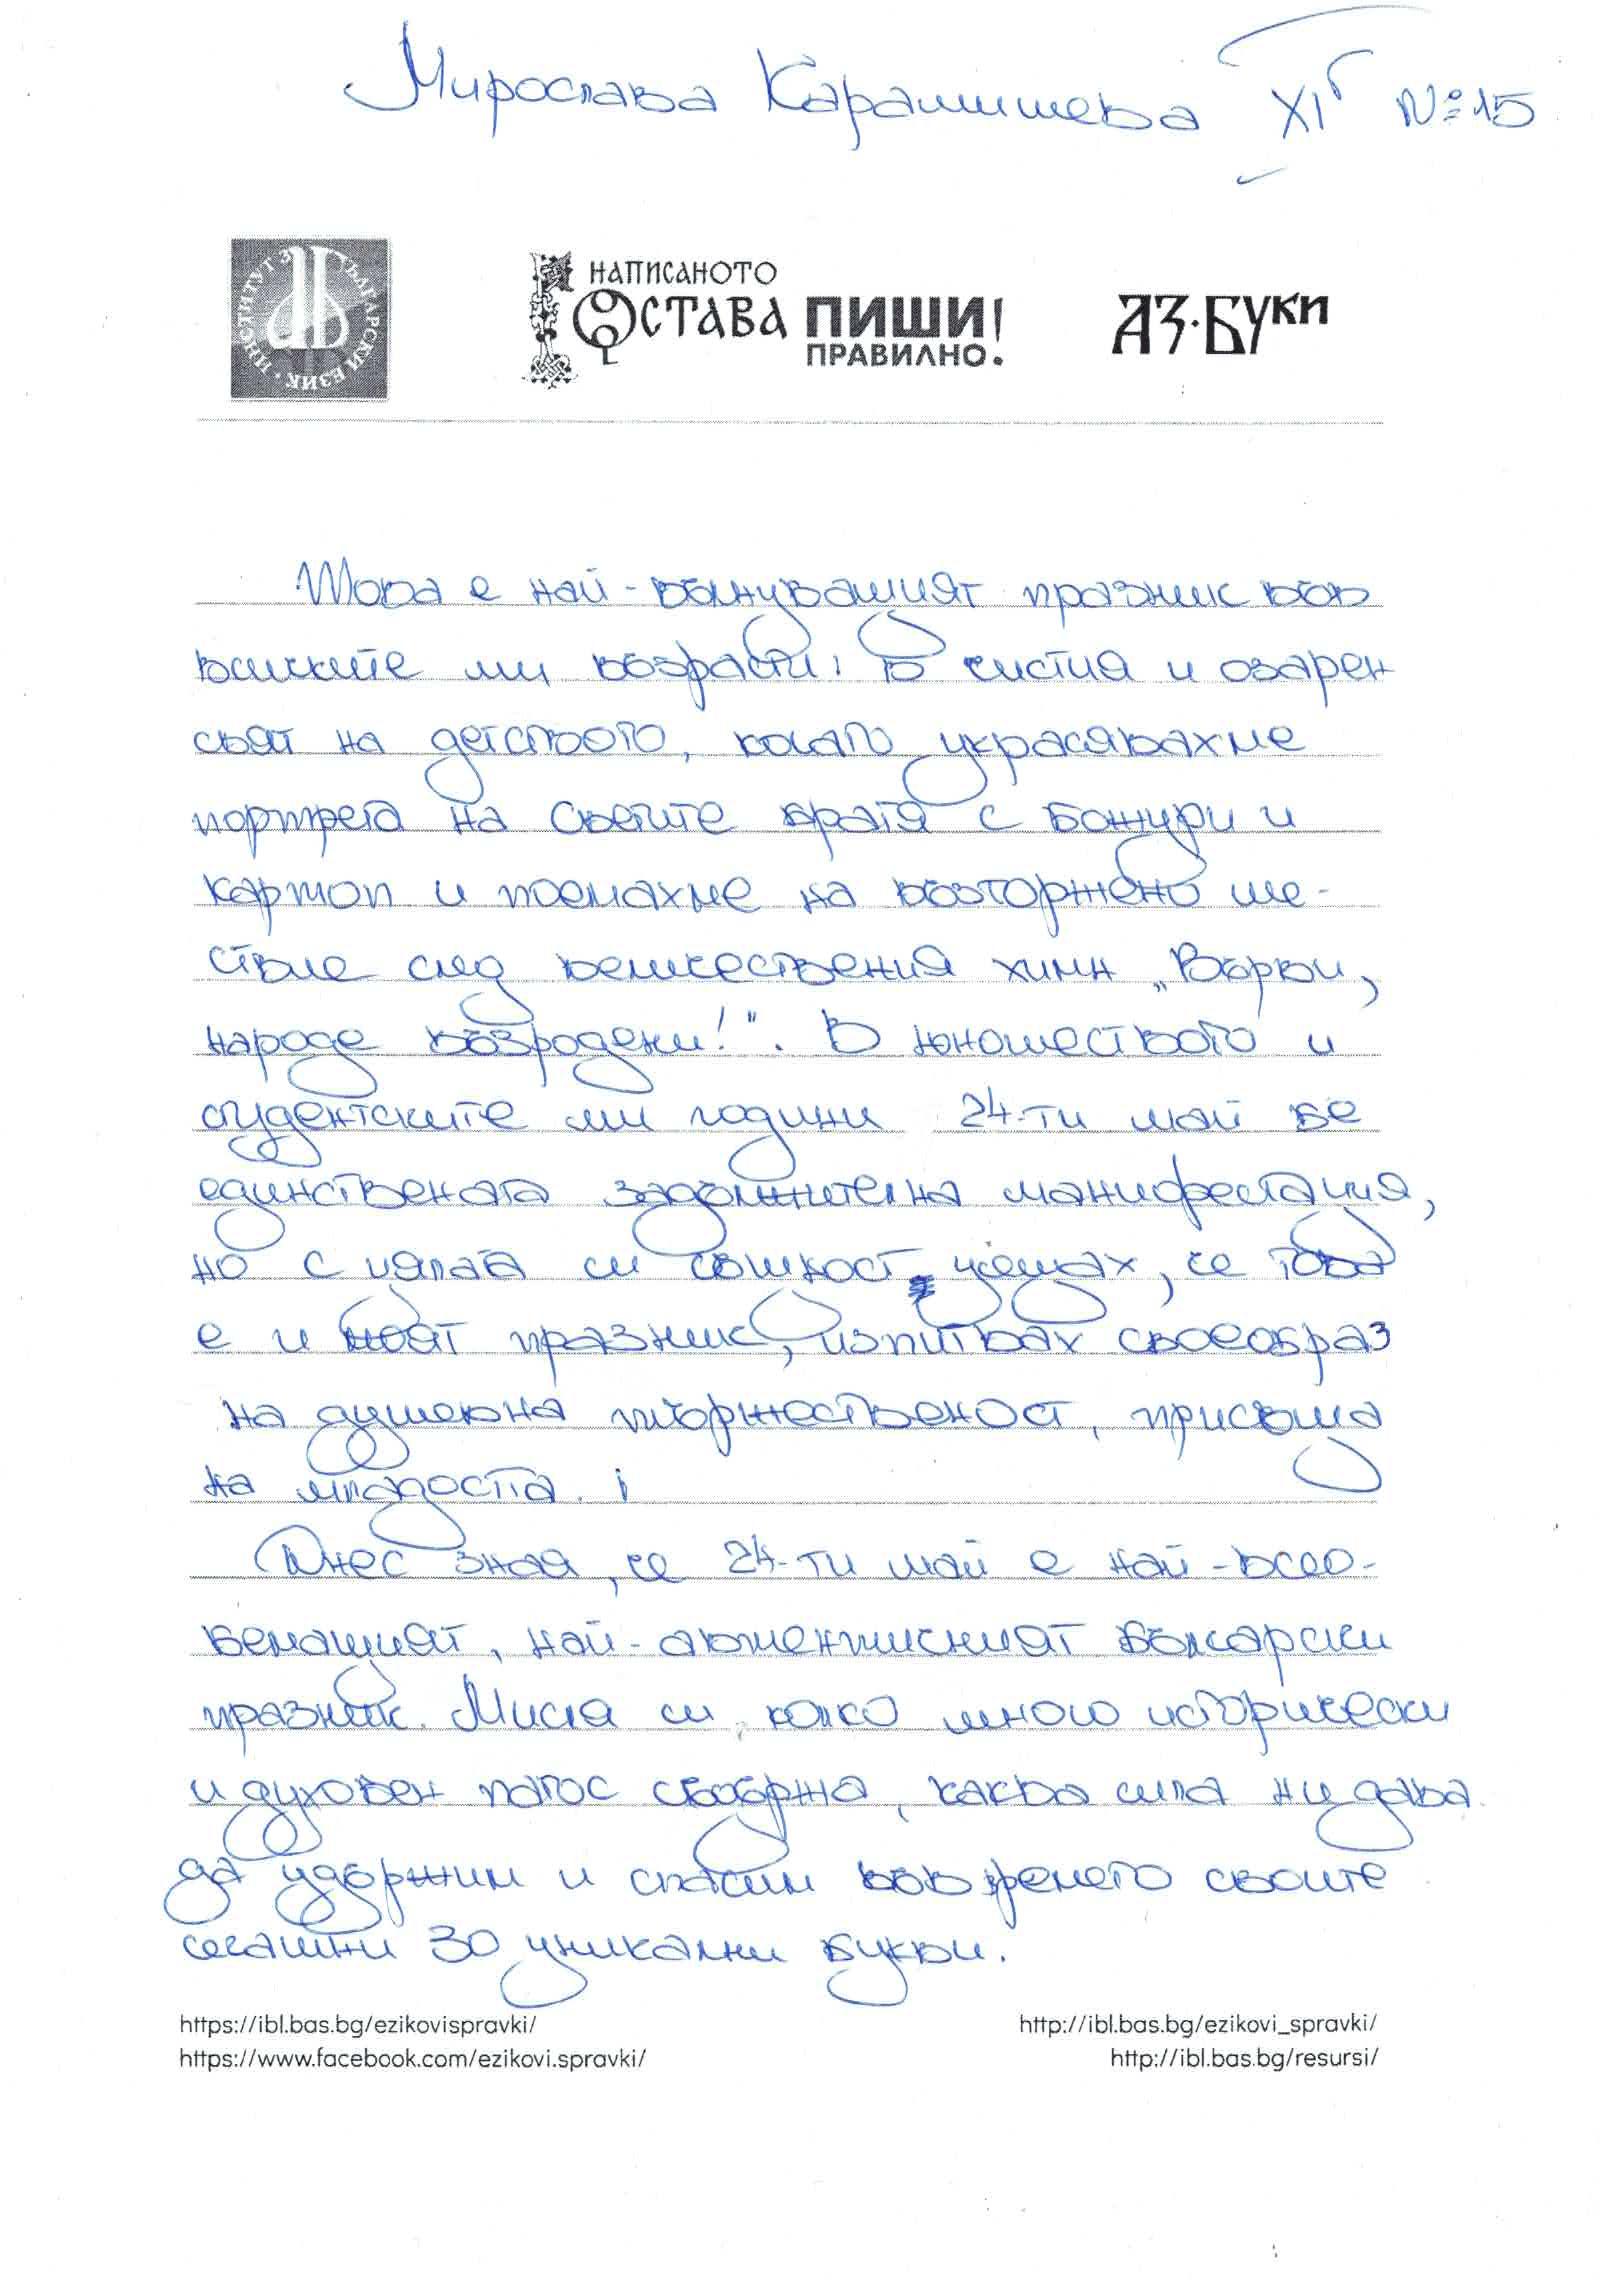 Мирослава Карамишева XIб №15
ИНСТИТУТ ЗА БЪЛГАРСКИ ЕЗИК
НАПИСАНОТО
ОСТАВА ПИШИ!
ПРАВИЛНО.
АЗ·БУКИ
Това е най-вълнуващият празник във
всичките ми възрасти. В чистия и озарен
свят на детството, когато украсявахме
портрета на Светите братя с божури и
картоп и поемахме на възторжено ше-
ствие след величествения химн „Върви,
народе възродени!". В юношеството и
студентските ми години 24-ти май бе
единствената задължителна манифестация,
но с цялата си същност усещах, че това
е и моят празник, изпитвах своеобраз
на душевна тържественост, присъща
на младостта.
Днес зная, че 24-ти май е най-всео-
бемащият, най-автентичният български
празник. Мисля си, колко много исторически
и духовен патос съдържа, каква сила ни дава
да удържим и спасим във времето своите
сегашни 30 уникални букви.
https://ibl.bas.bg/ezikovispravki/
http://ibl.bas.bg/ezikovi_spravki/
https://www.facebook.com/ezikovi.spravki/
http://ibl.bas.bg/resursi/